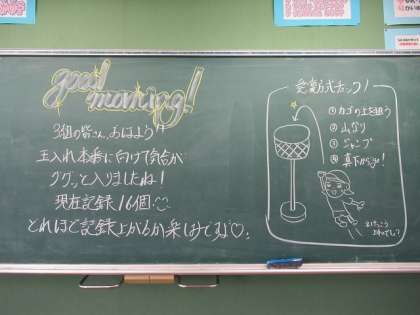 good
morning!
3組の皆さん、おはよう!!
玉入れ本番に向けて気合が
ググッと入りましたね!
現在記録16個
どれほど記録上がるか楽しみですね♡
必勝式チェック!
① カゴの上を狙う
② 山なり
③ ジャンプ
④ 真下から!